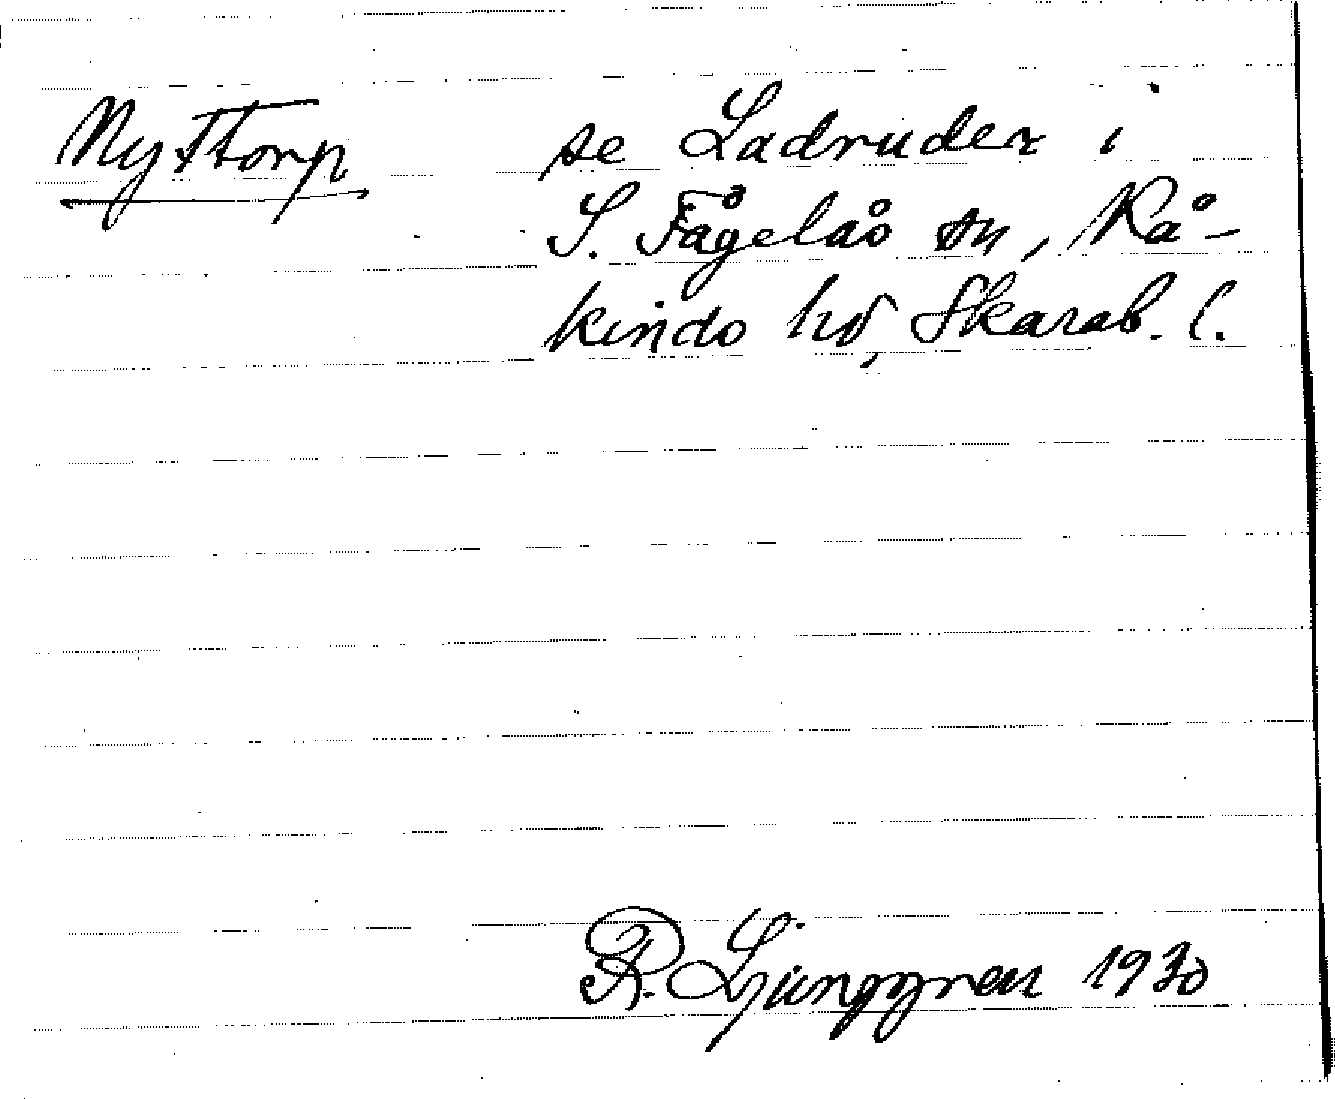 Nyttorp
se Ladruder i
S. Fågelås sn, Kå-
kinds hd, Skarab. l.
R. Ljunggren 1930